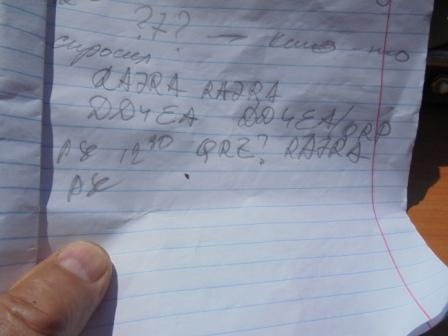 ?7? — кто-то
спросил
RA7RA RA7RA
DD4EA DD4EA/QRP
12⁴⁰ QRZ? RA7RA